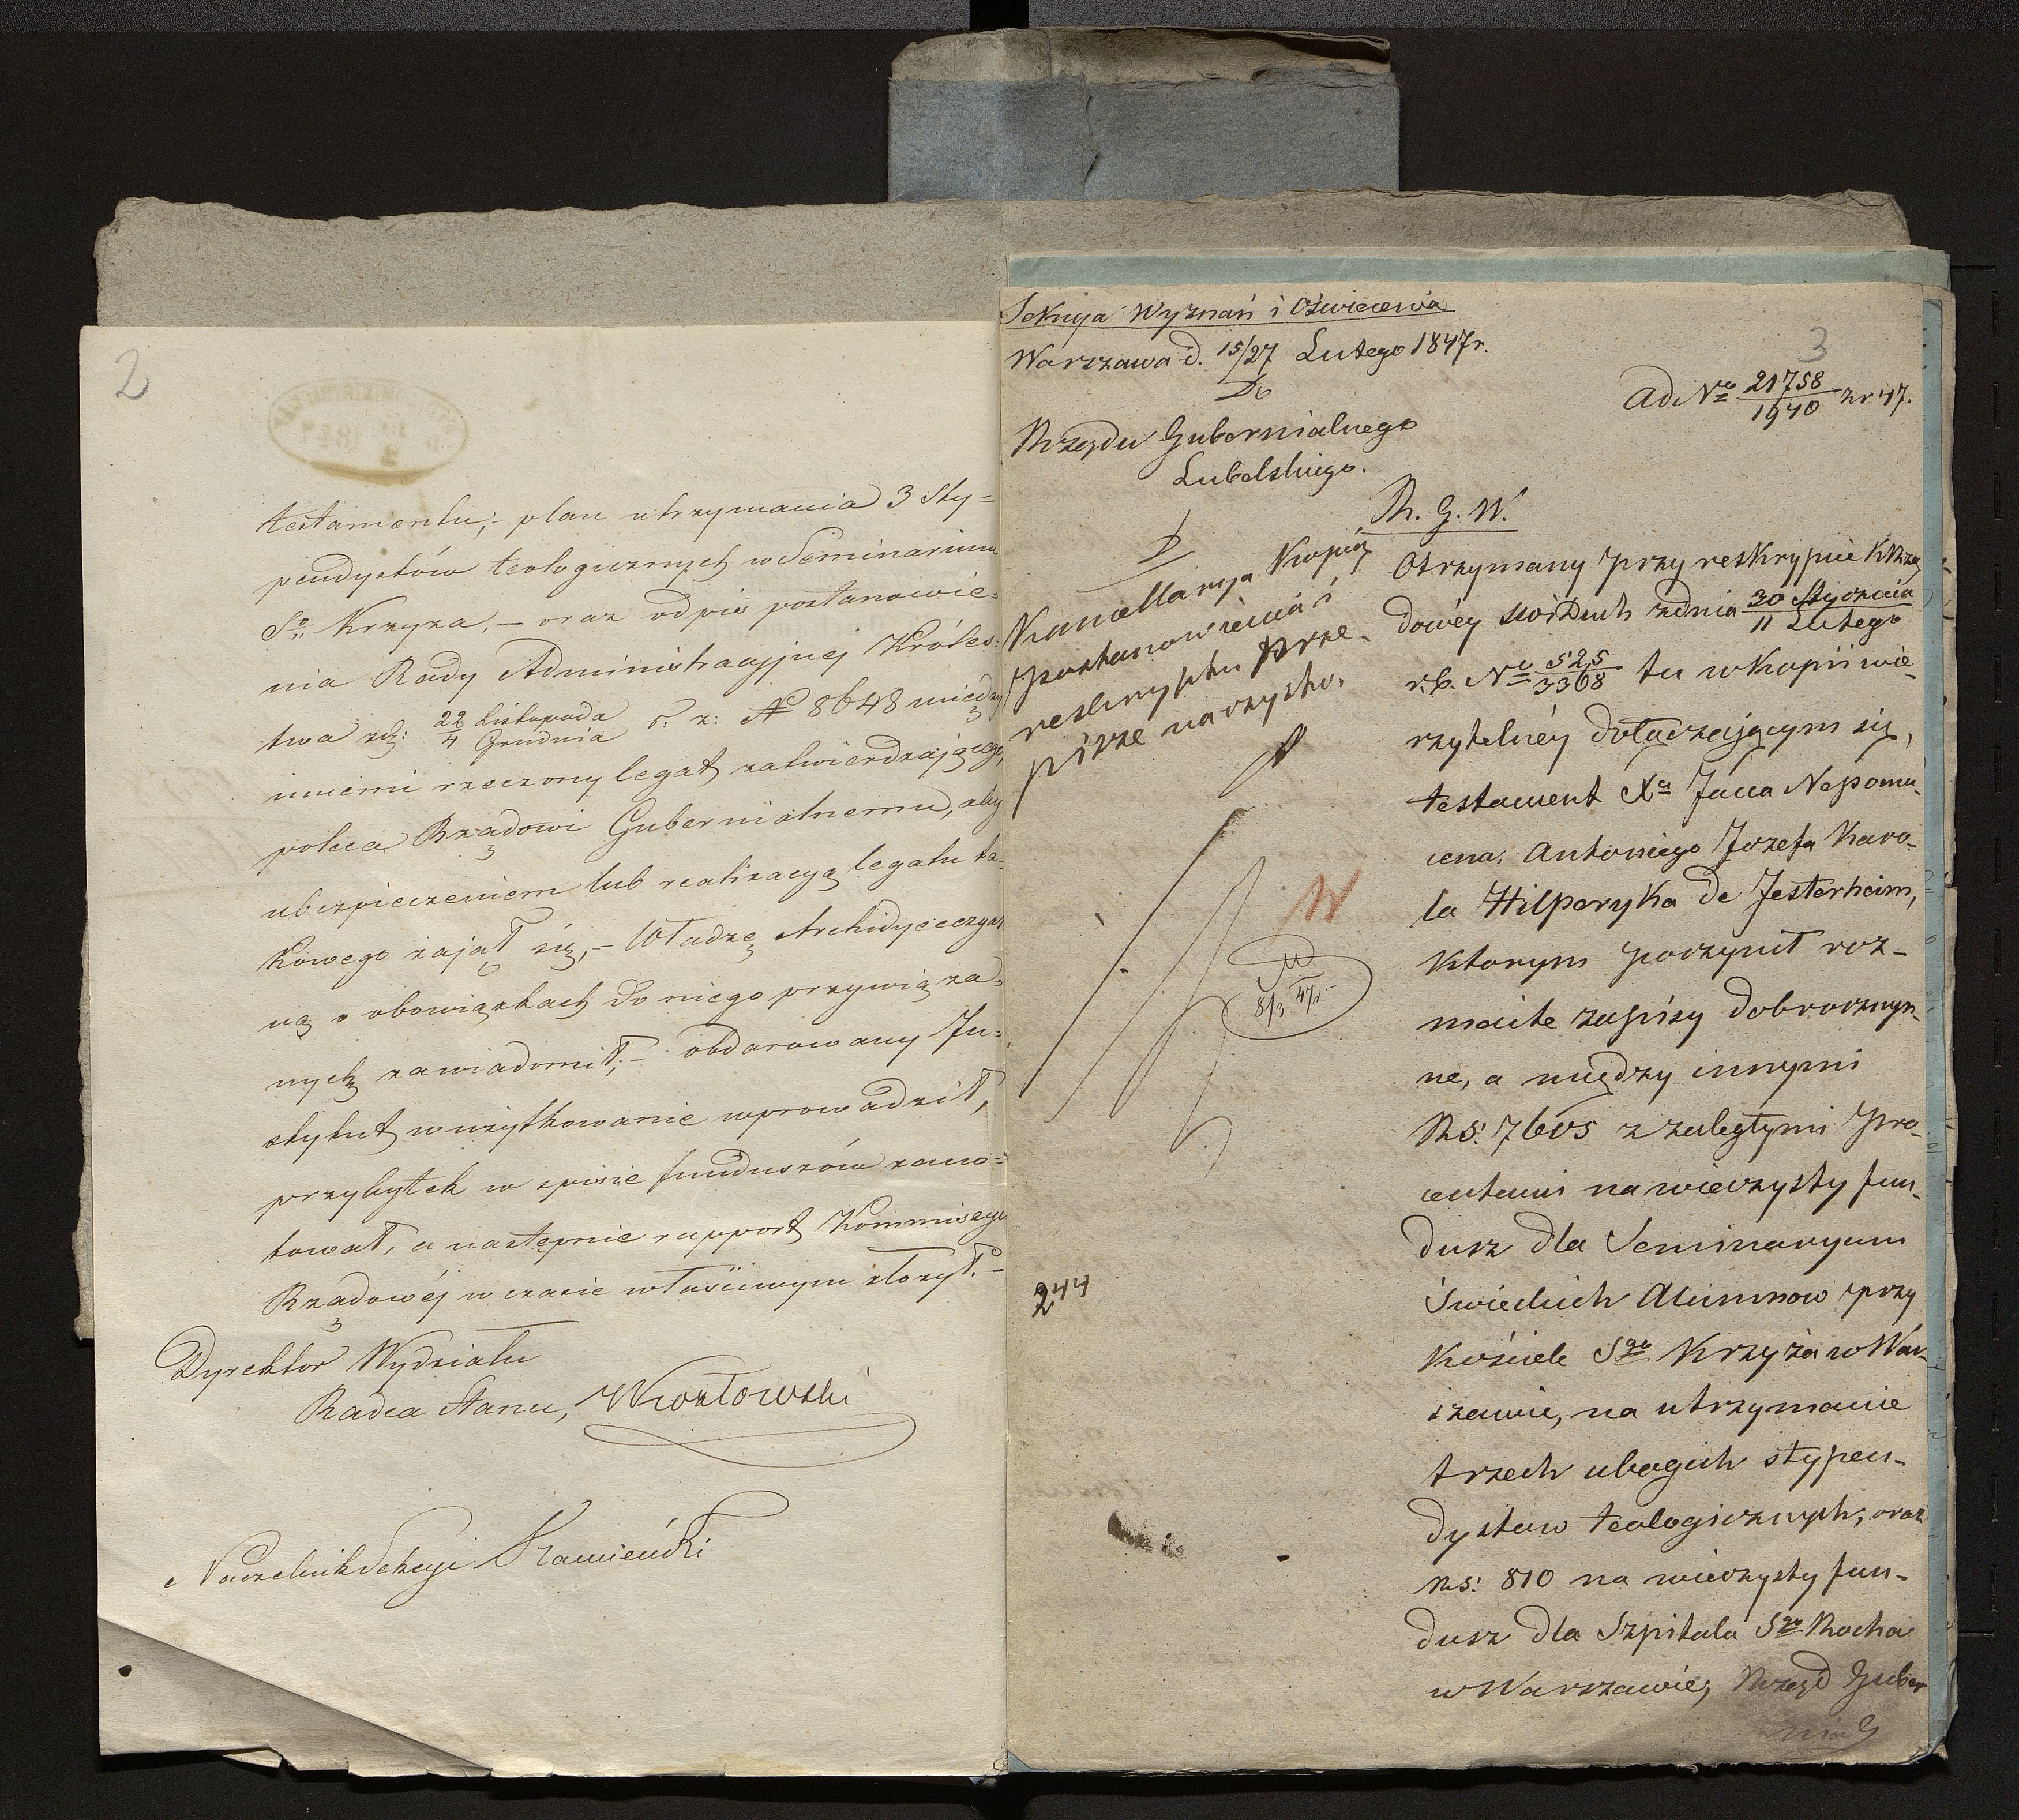 2
testamentu, – plan utrzymania 3 sty=
pendystów teologicznych w Seminarium
Sgo Krzyża, – oraz odpis postanowie=
nia Rady Administracyjnej Króles=
twa zd: 22 Listopada / 4 Grudnia r. z: № 8648 między
innemi rzeczony legat zatwierdzającego,
poleca Rządowi Gubernialnemu, aby
ubezpieczeniem lub realizacyą legatu ta-
kowego zajął się, – Władzę Archidyecezyal
ną o obowiązkach do niego przywiąza=
nych zawiadomił; – obdarowany In=
stytut w użytkowanie wprowadził,
przybytek w spisie funduszów zano=
tował, a następnie rapport Kommissyi
Rządowéj w czasie właściwym złożył. –
Dyrektor Wydziału
Radca Stanu, Kozłowski
Naczelnik Sekcyi Kamieński
3
Sekcya Wyznań i Oświecenia
Warszawa d. 15/27 Lutego 1847 r.
Do
Rządu Gubernialnego
Lubelskiego.
ad No 21758/1940 z r 47.
R. G. W.
Kancellarya Kopią
postanowienia i
reskryptu prze-
pisze na czysto.
Otrzymany przy reskrypcie KRzą
dowéy SWiDuch z dnia 30 Stycznia / 11 Lutego
r. b. No 525/3368 tu w kopii wie-
rzytelnéy dołączającym się,
testament Xa Jana Nepomu-
cena, Antoniego Jozefa Karo-
la Hilperyka de Jesterheim,
ktorym poczynił roz-
maite zapisy dobroczyn-
ne, a między innymi
Rs: 7605 z zaległymi pro-
centami na wieczysty fun-
dusz dla Seminaryum
Świeckich Alumnow przy
Kościele Sgo Krzyża w War-
szawie, na utrzymanie
trzech ubogich stypen-
dystow teologicznych, oraz
Rs: 810 na wieczysty fun-
dusz dla Szpitala Sgo Rocha
w Warszawie, Rząd Guber
nial
W
8/3 47 r.
244